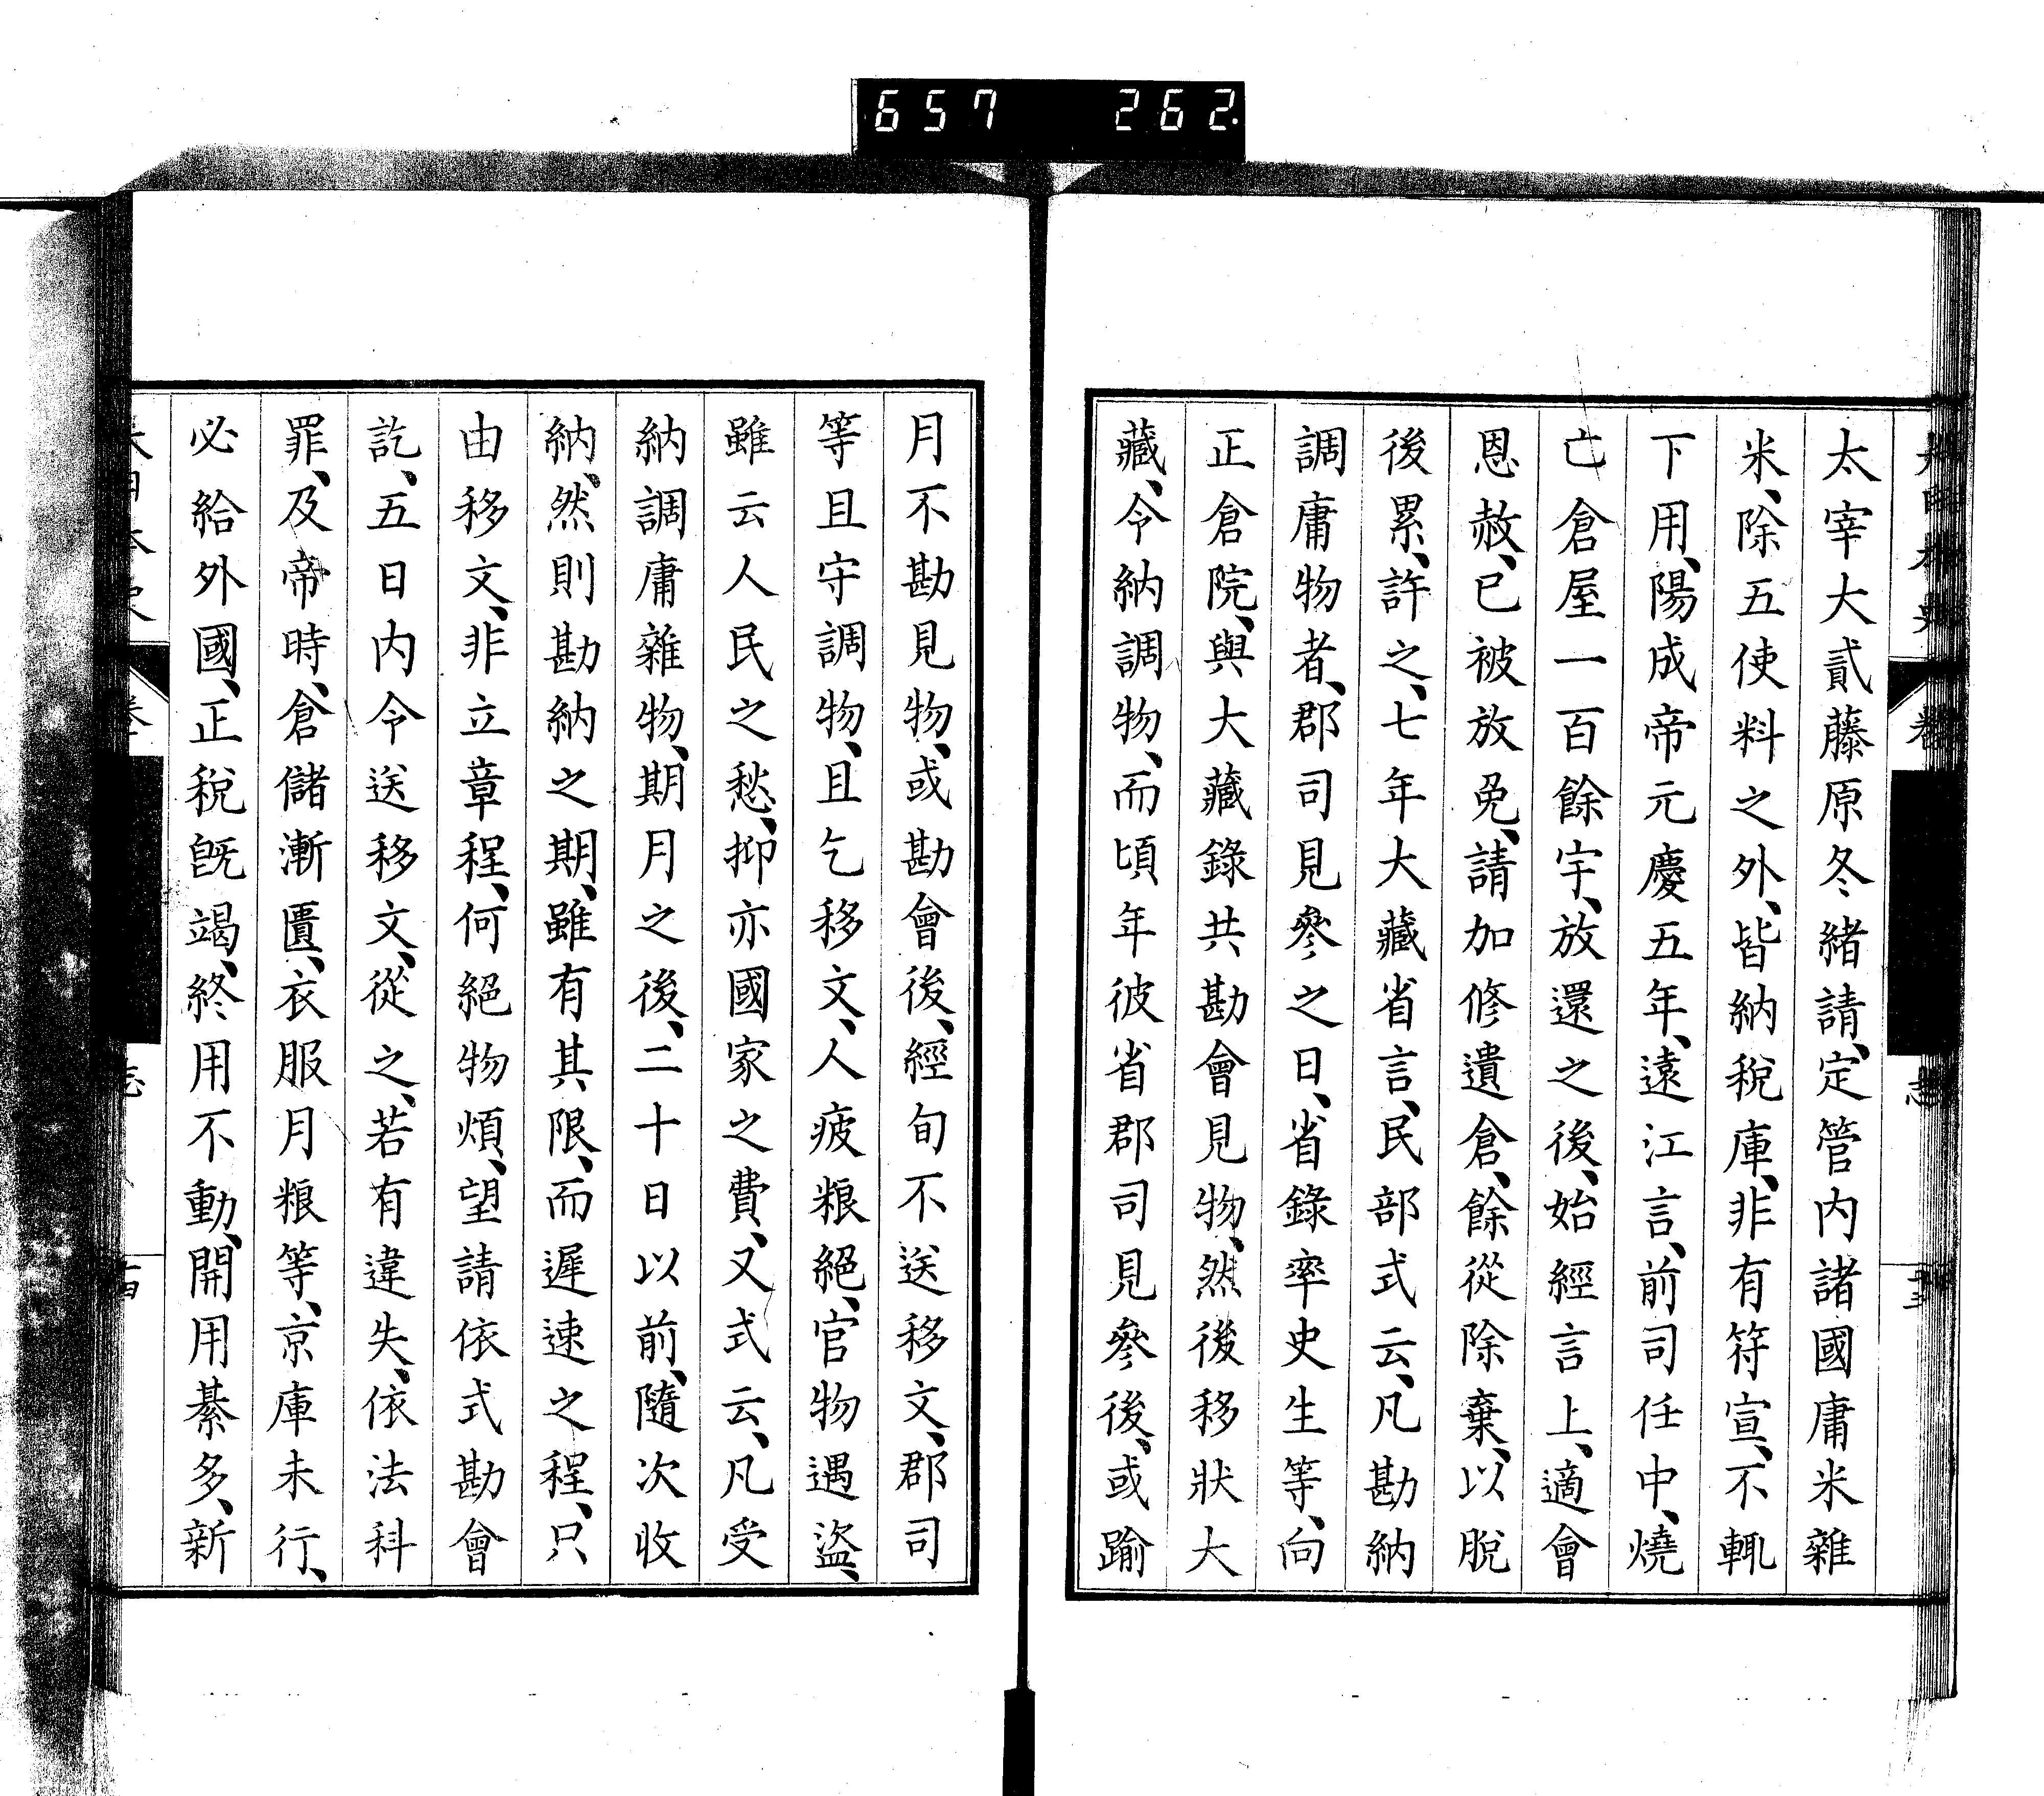 657 262
太宰大貳藤原冬緒請、定管内諸國庸米雜
米、除五使料之外、皆納稅庫、非有符宣、不輙
下用、陽成帝元慶五年、遠江言、前司任中、燒
亡倉屋一百餘宇、放還之後、始經言上、適會
恩赦、已被放免、請加修遺倉、餘從除棄、以脫
後累、許之、七年大藏省言、民部式云、凡勘納
調庸物者、郡司見參之日、省錄率史生等、向
正倉院、與大藏錄共勘會見物、然後移狀大
藏、令納調物、而頃年彼省郡司見參後、或踰
月不勘見物、或勘會後、經旬不送移文、郡司
等且守調物、且乞移文、人疲粮絕、官物遇盜、
雖云人民之愁、抑亦國家之費、又式云、凡受
納調庸雜物、期月之後、二十日以前、隨次收
納、然則勘納之期、雖有其限、而遲速之程、只
由移文、非立章程、何絕物煩、望請依式勘會
訖、五日内令送移文、從之、若有違失、依法科
罪、及帝時、倉儲漸匱、衣服月粮等、京庫未行、
必給外國、正稅旣竭、終用不動、開用綦多、新